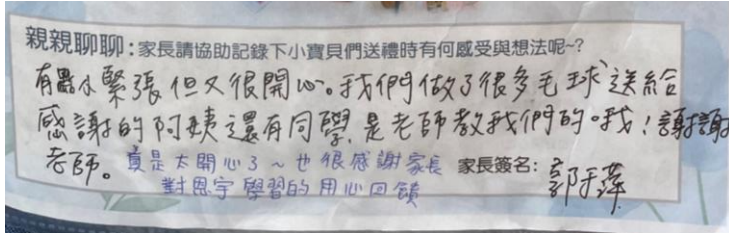 親親聊聊：家長請協助記錄下小寶貝們送禮時有何感受與想法呢~?
有點小緊張但又很開心。我們做了很多毛球送給
感謝的阿姨還有同學，是老師教我們的。我！謝謝
老師。真是太開心了～也很感謝家長 家長簽名：郭于萍
對恩宇學習的用心回饋